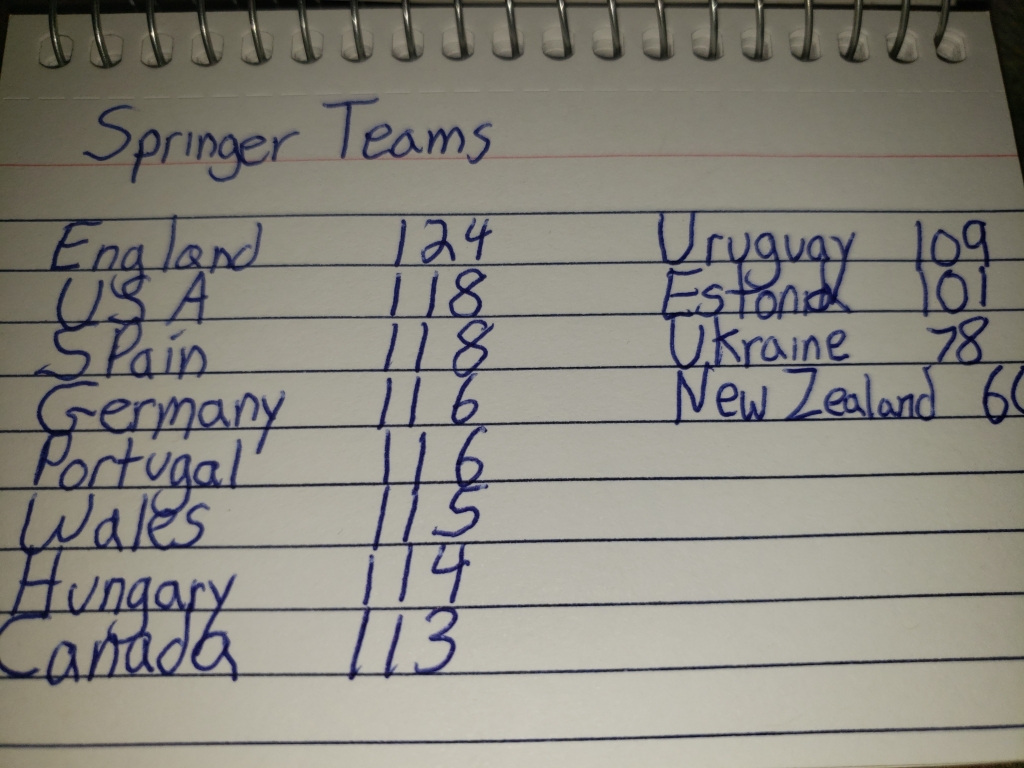 Springer Teams
England 124
USA 118
Spain 118
Germany 116
Portugal 116
Wales 115
Hungary 114
Canada 113
Uruguay 109
Estonia 101
Ukraine 78
New Zealand